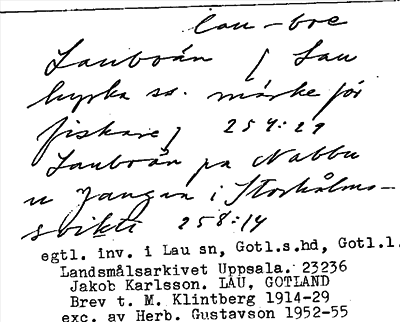 lau-boe
Lauboån [ Lau
kyrka ss. märke för
fiskare ] 254:29
Lauboån pa Nabbu
u Jangen i Storholms-
svikti 258:14
egtl. inv. i Lau sn, Gotl.s.hd, Gotl.l.
Landsmålsarkivet Uppsala. 23236
Jakob Karlsson. LAU, GOTLAND
Brev t. M. Klintberg 1914-29
exc. av Herb. Gustavson 1952-55